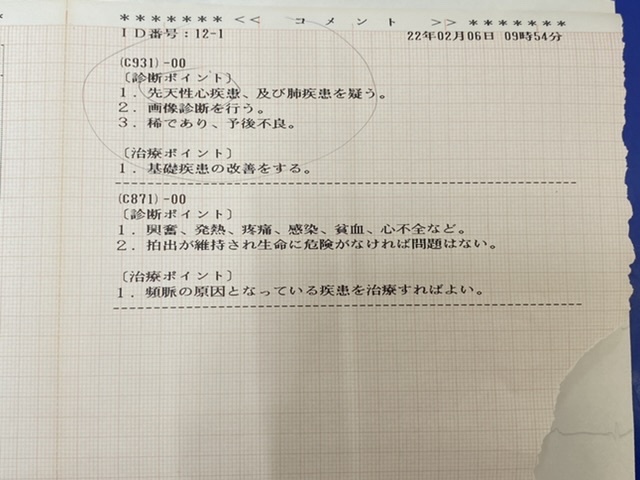 ＊＊＊＊＊＊＊ << コメント >> ＊＊＊＊＊＊＊
ID番号：12-1 22年02月06日 09時54分
(C931)-00
〔診断ポイント〕
1．先天性心疾患、及び肺疾患を疑う。
2．画像診断を行う。
3．稀であり、予後不良。
〔治療ポイント〕
1．基礎疾患の改善をする。
(C871)-00
〔診断ポイント〕
1．興奮、発熱、疼痛、感染、貧血、心不全など。
2．拍出が維持され生命に危険がなければ問題はない。
〔治療ポイント〕
1．頻脈の原因となっている疾患を治療すればよい。